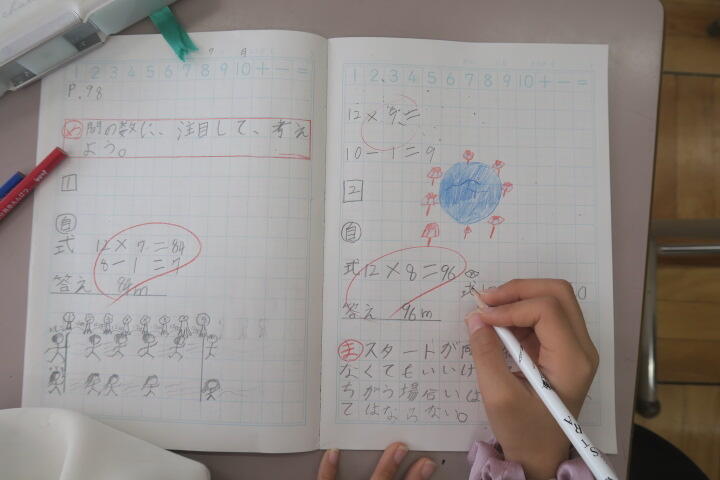 1 2 3 4 5 6 7 8 9 10 + − =
P.98
め 間の数に、注目して、考え
よう。
1
自
式 12×7=84
8−1=7
答え 84m
1 2 3 4 5 6 7 8 9 10 + − =
12×9=
10−1=9
2
自
式12×8=96
式
答え 96m
ま スタートが
なくてもいいけ
ちがう場合いは
てはならない。